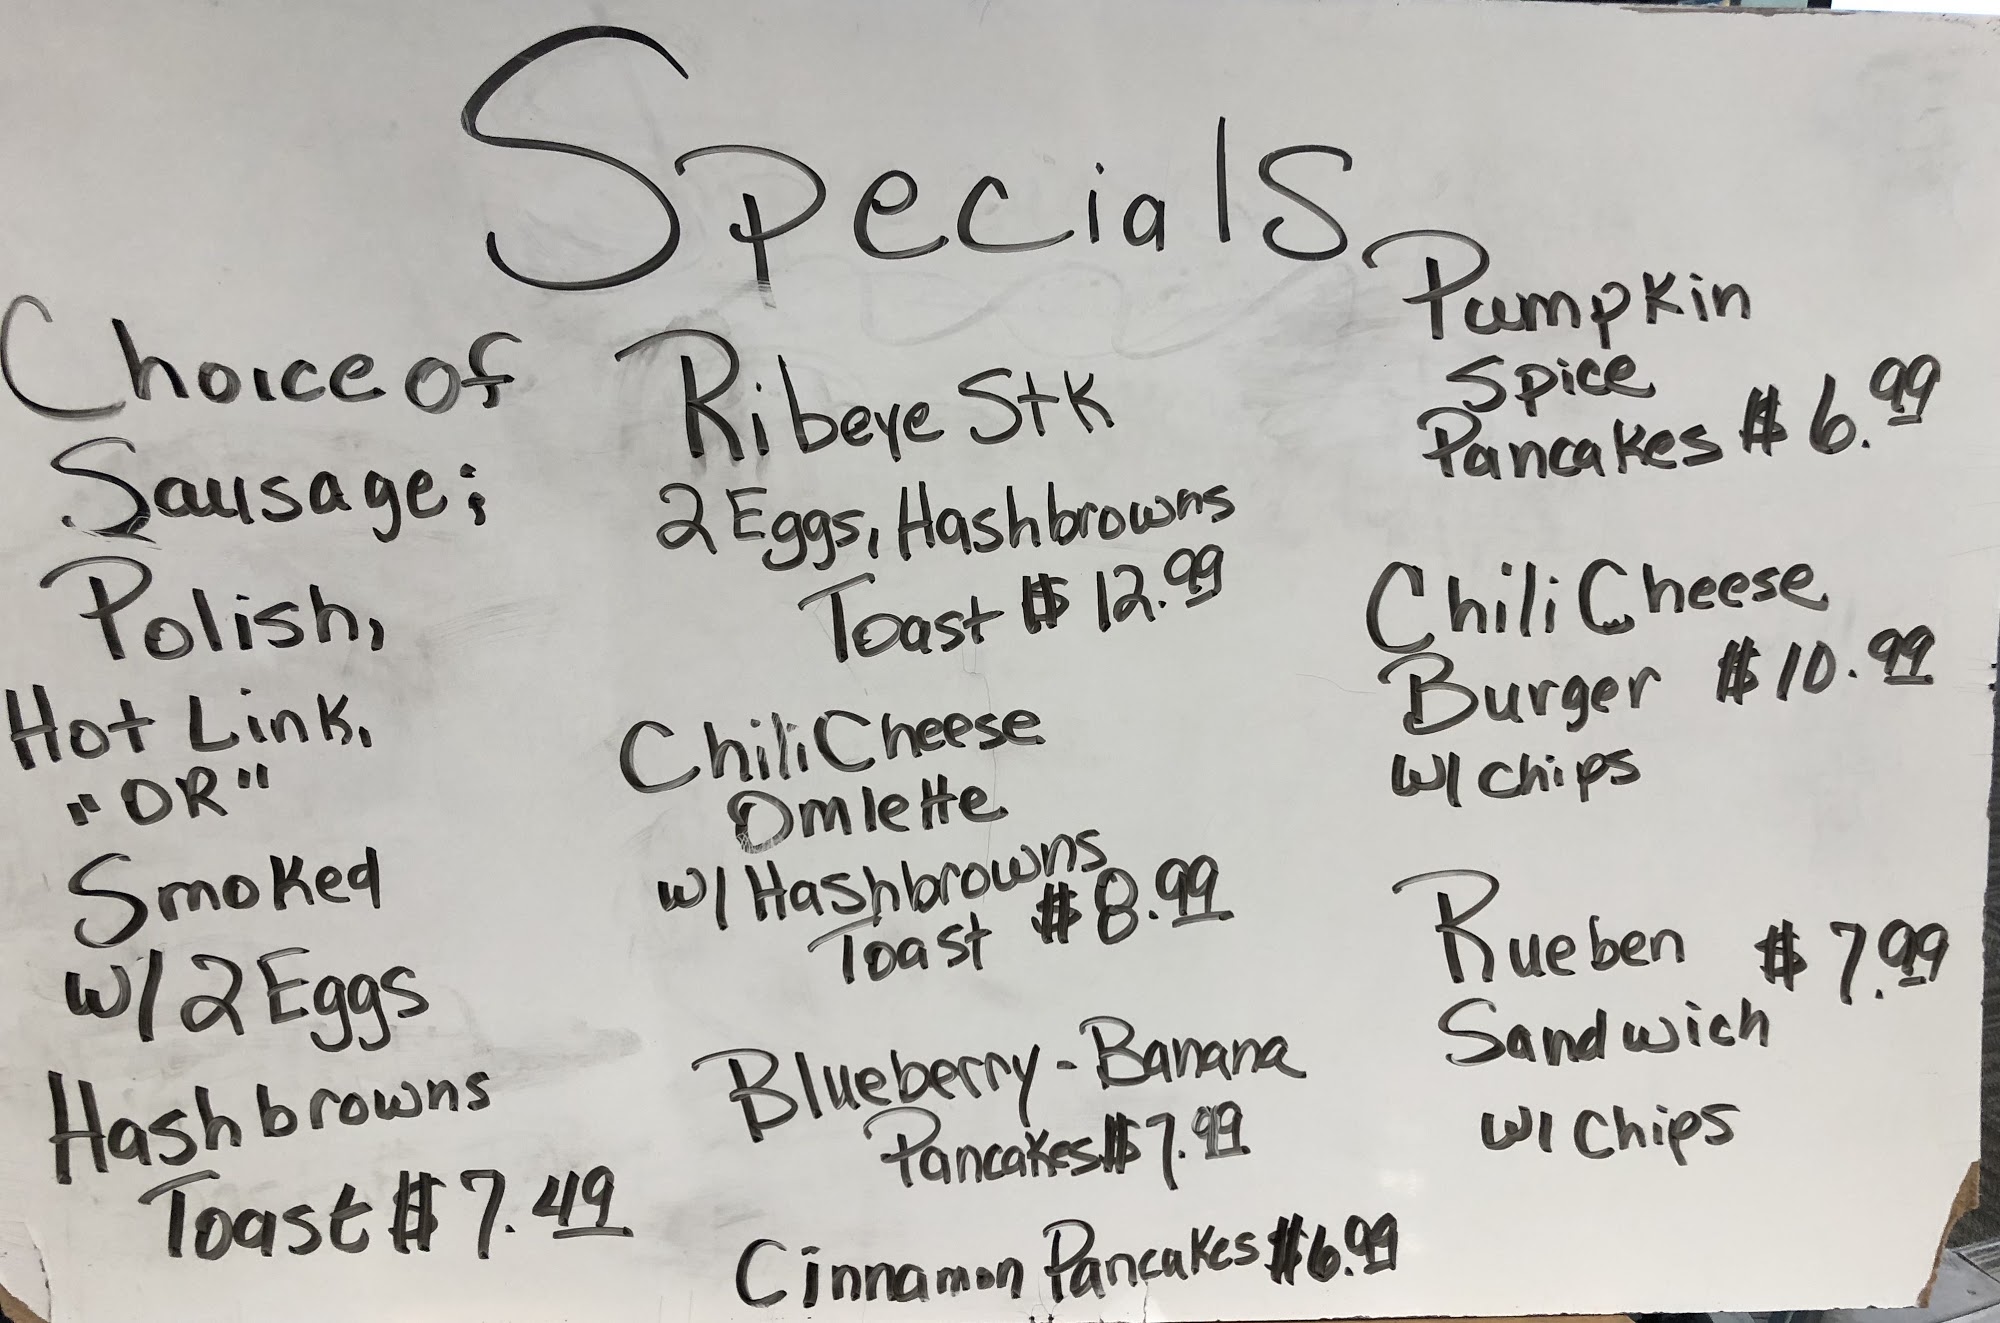 Specials
Choice of
Sausage;
Polish,
Hot Link,
"OR"
Smoked
w/ 2 Eggs
Hashbrowns
Toast $7.49
Ribeye Stk
2 Eggs, Hashbrowns
Toast $12.99
Chili Cheese
Omlette
w/ Hashbrowns
Toast $8.99
Blueberry-Banana
Pancakes $7.99
Cinnamon Pancakes $6.99
Pumpkin
Spice
Pancakes $6.99
Chili Cheese
Burger $10.99
w/ chips
Rueben $7.99
Sandwich
w/ Chips